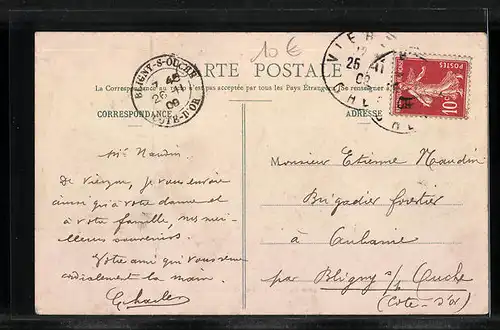 10 €
CARTE POSTALE
La Correspondance au recto n'est pas acceptée par tous les Pays Étrangers (Se renseigner à la
CORRESPONDANCE
ADRESSE
BLIGNY-S-OUCHE
7 45
26 11
09
COTE-D'OR
VIERZON
25 11
09
CHER
POSTES
10c
Mr Naudin
De Vierzon, je vous envoie
ainsi qu'à votre dame et
à votre famille, nos meil-
leurs souvenirs.
Votre ami qui vous serre
cordialement la main.
Charles
Monsieur Etienne Naudin
Brigadier forestier
à Aubaine
par Bligny s/ Ouche
(Cote-d'or)